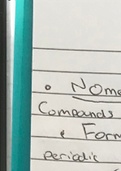 • Nome
Compounds
• Form
periodic